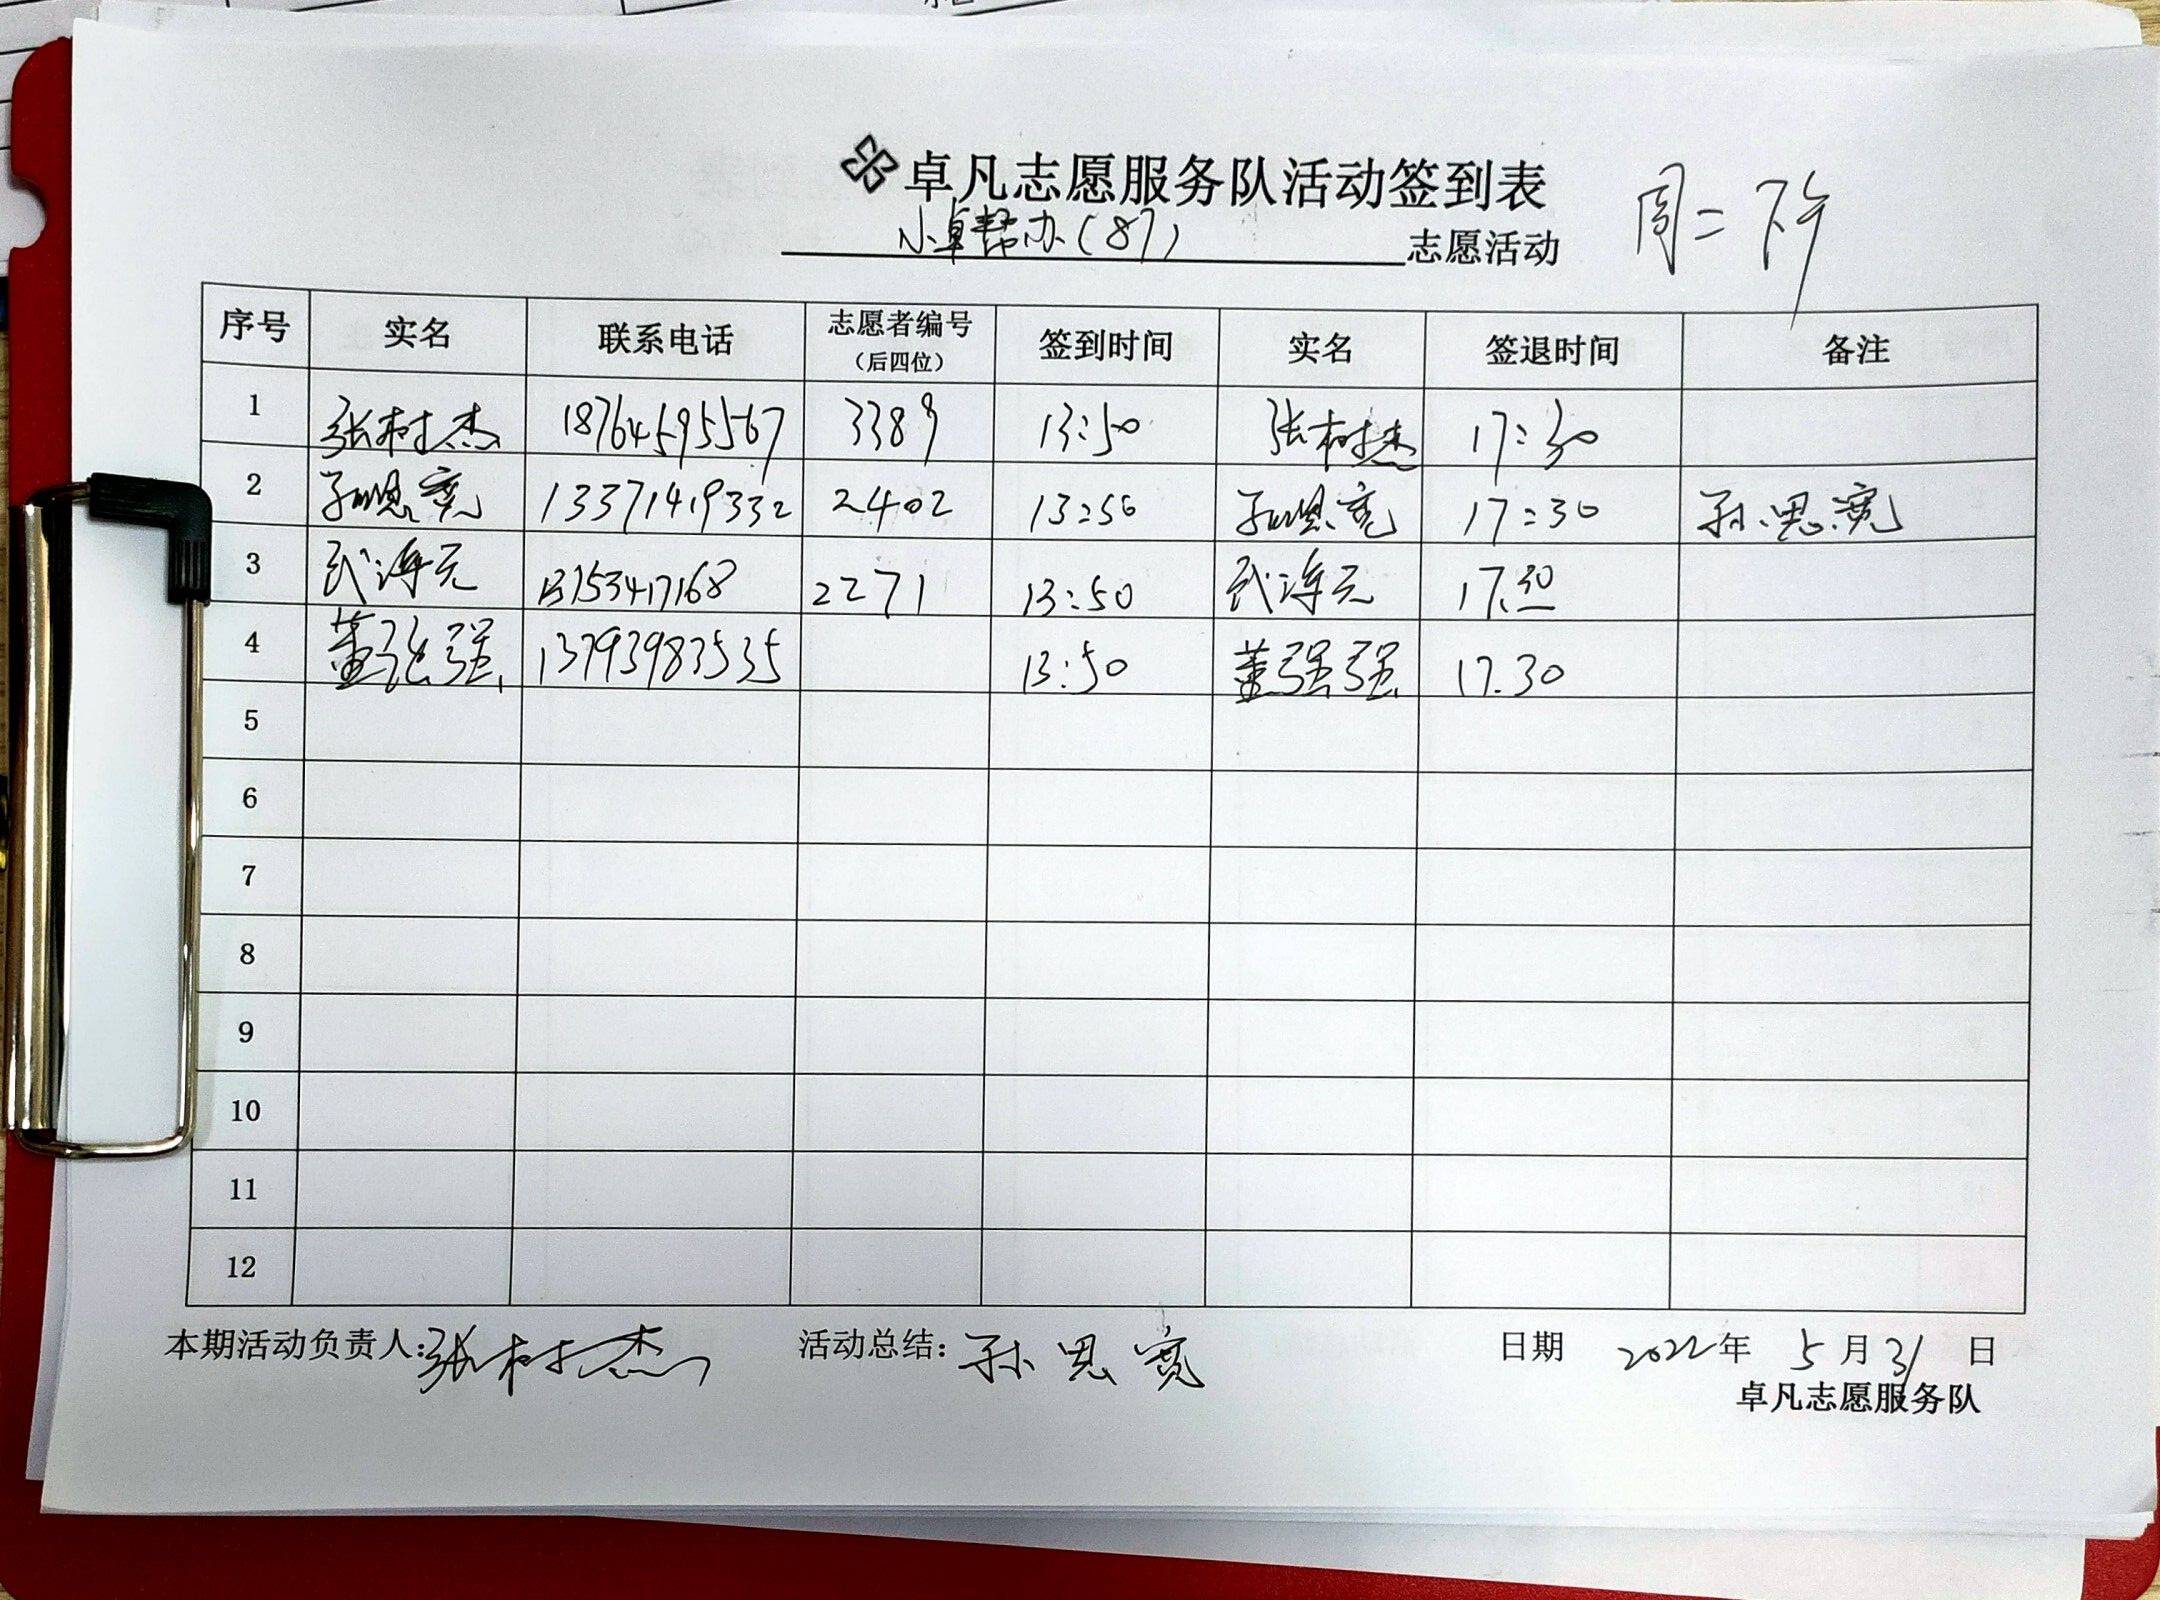 卓凡志愿服务队活动签到表
小卓帮办(87) 志愿活动 周二 下午
序号 实名 联系电话 志愿者编号(后四位) 签到时间 实名 签退时间 备注
1 张树杰 18764595567 3389 13:50 张树杰 17:30
2 孙思宽 13371419332 2402 13:50 孙思宽 17:30 孙思宽
3 武海元 13153417168 2271 13:50 武海元 17.30
4 董强强 13793983535 13:50 董强强 17.30
5
6
7
8
9
10
11
12
本期活动负责人:张树杰 活动总结:孙思宽 日期 2022年 5月31日
卓凡志愿服务队